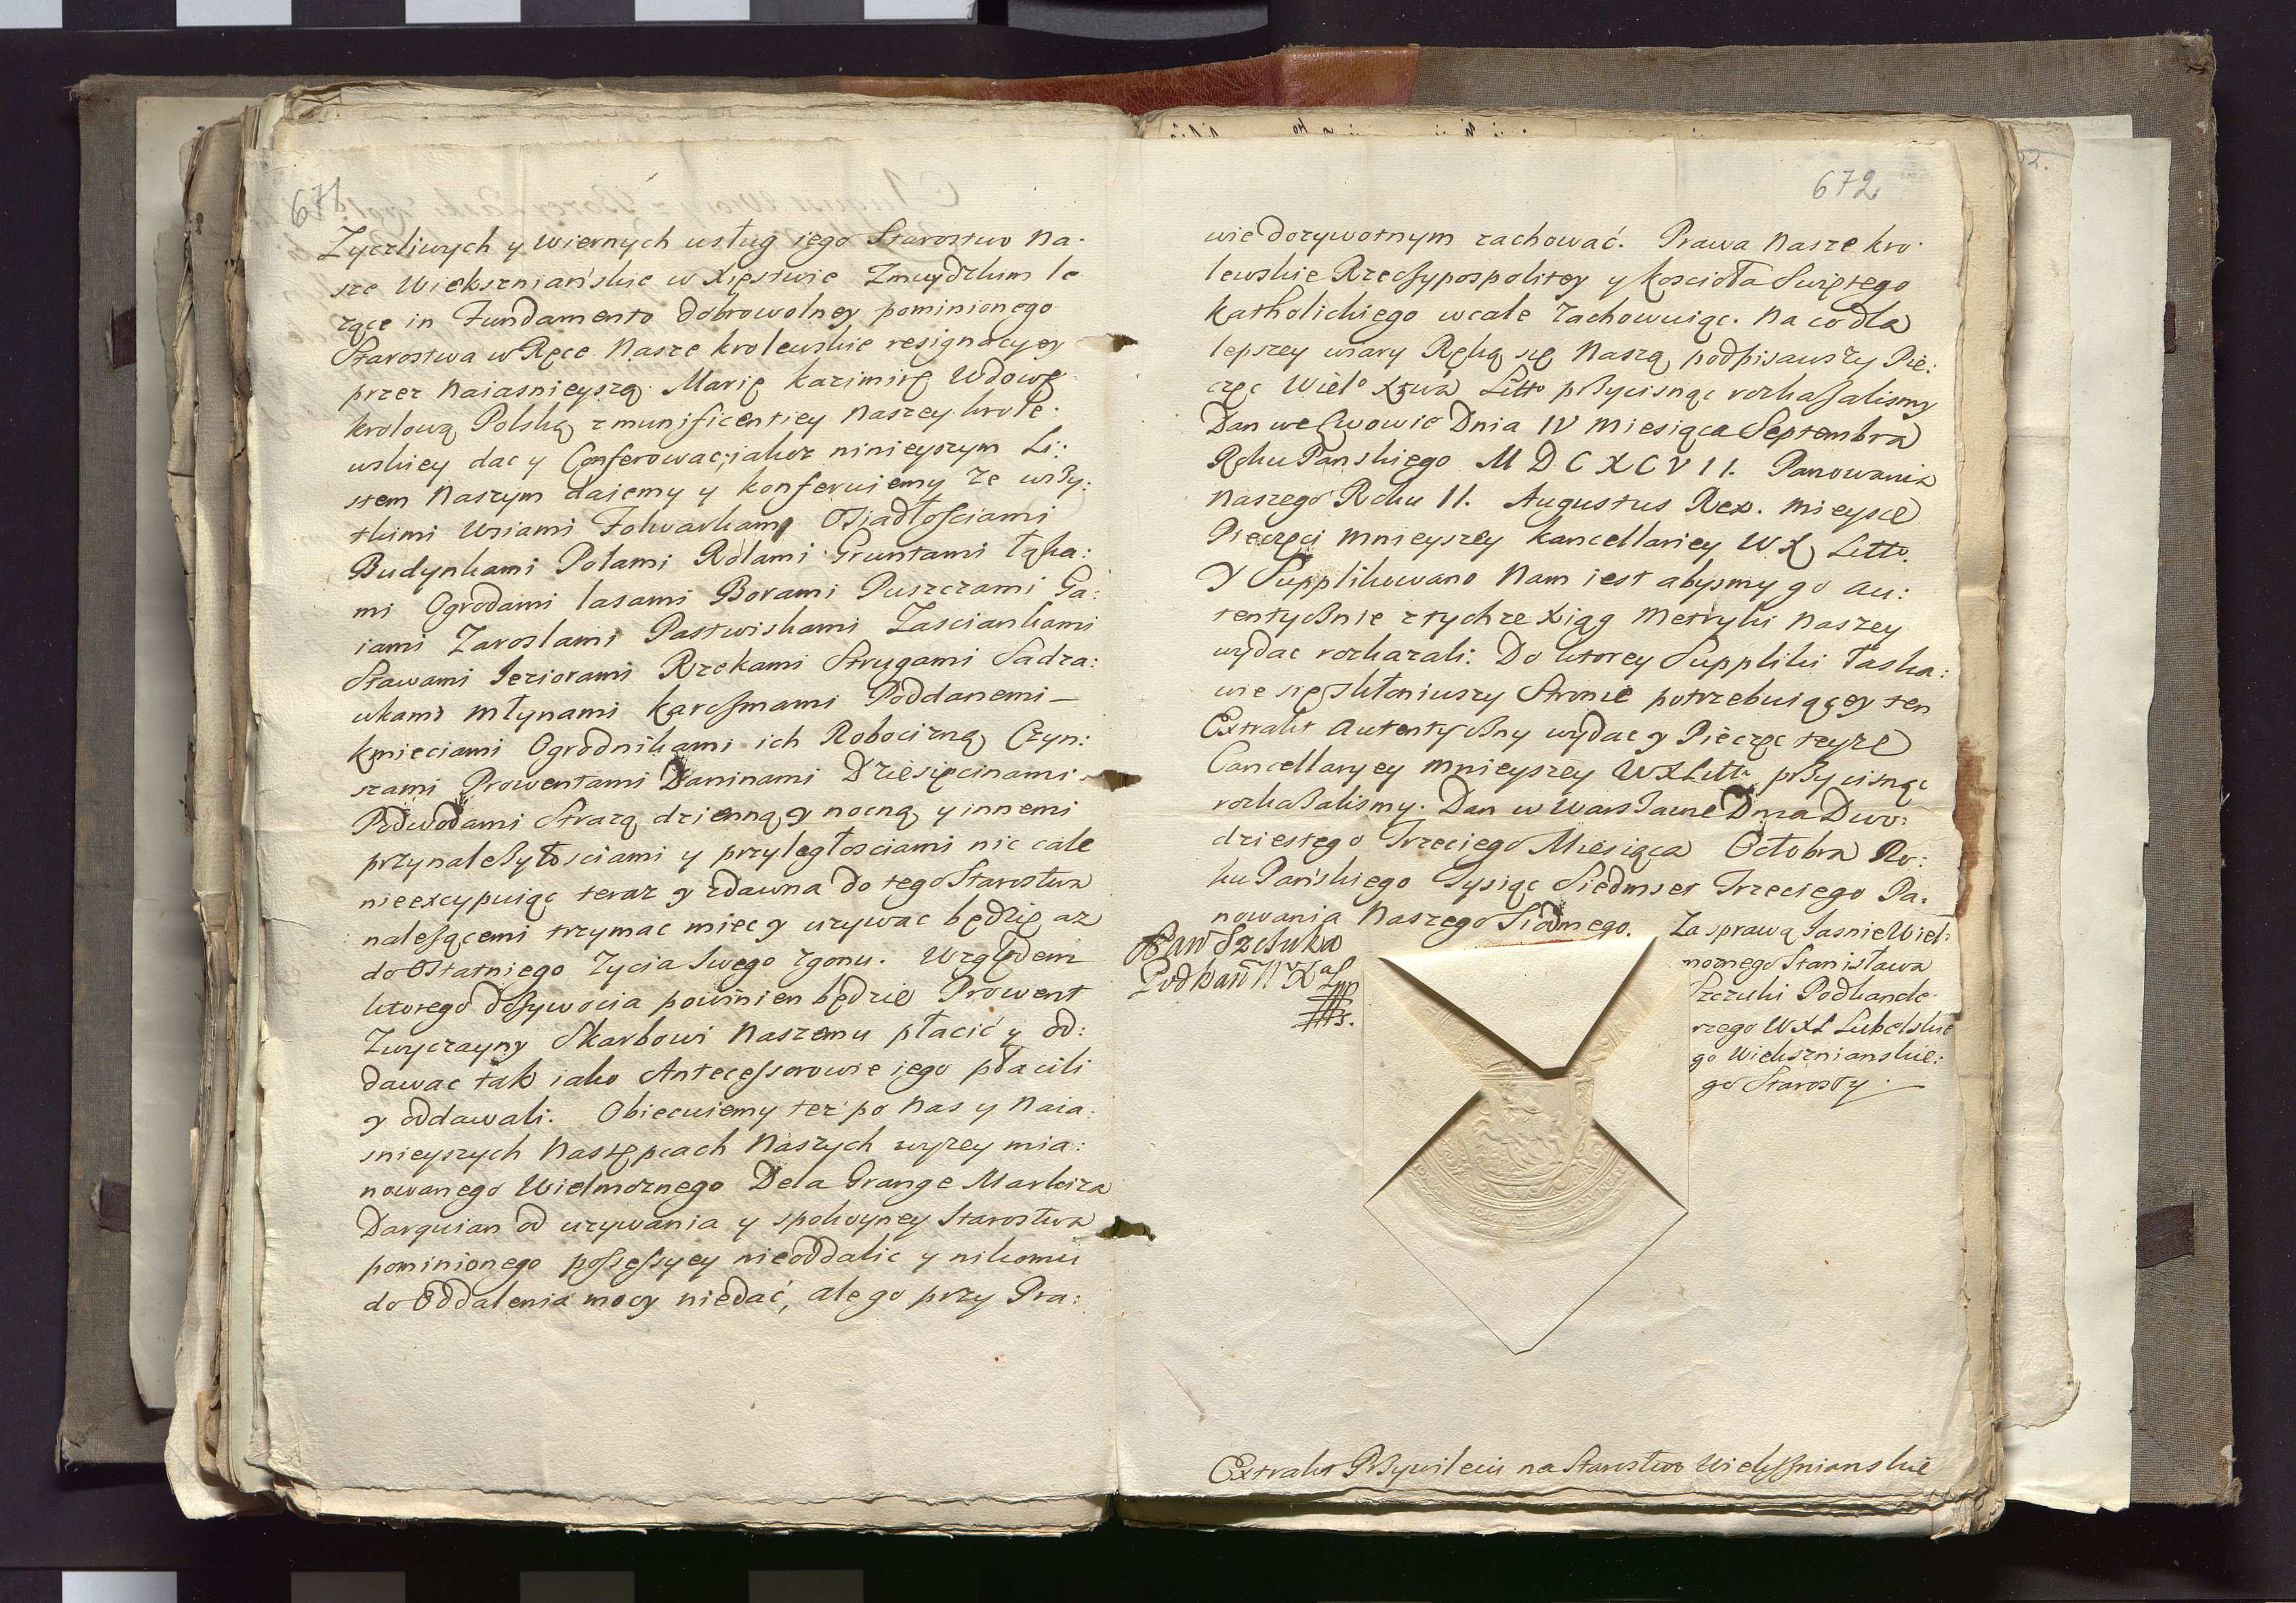 671
Zyczliwych y wiernych usług iego Starostwo Na-
sze Wiekszniańskie w Xięstwie Zmuydzkim le
zące in Fundamento dobrowolney pominionego
Starostwa w Ręce Nasze krolewskie resignacyey
przez Naiasnieyszą Marię Kazimirę Wdowę
krolową Polską z munificentiey Naszey krole-
wskiey dac y Conferowac, iakoz ninieyszym Li:
stem Naszym daiemy y konferuiemy ze wszy:
tkimi Wsiami Folwarkami Osiadłościami
Budynkami Polami Rolami Gruntami Łąka:
mi Ogrodami lasami Borami Puszczami Ga:
iami Zaroslami Pastwiskami Zasciankami
Stawami Ieziorami Rzekami Strugami Sadza:
wkami Młynami Karczmami Poddanemi
Kmieciami Ogrodnikami ich Robocizną Czyn:
szami Prowentami Daninami Dziesięcinami
Podwodami Strazą dzienną y nocną y innemi
przynaleszytosciami y przyległosciami nic cale
nieexcypuiąc teraz y zdawna do tego Starostwa
należącemi trzymac miec y uzywac będzie az
do Ostatniego Zycia Swego Zgonu. Względem
ktorego dożywocia powinien będzie Prowent
Zwyczayny Skarbowi Naszemu płacić y od:
dawac tak iako Antecessorowie iego płacili
y oddawali. Obiecuiemy też po Nas y Naia:
snieyszych Następcach Naszych wyzey mia:
nowanego Wielmoznego Dela Grange Markiza
Darquian od uzywania y spokoyney Starostwa
pominionego possessyey nieoddalic y nikomu
do Oddalenia mocy niedać, ale go przy Pra:
672
wie dozywotnym zachować. Prawa Nasze kro-
lewskie Rzeczypospolitey y Koscioła Swiętego
Katholickiego wcale Zachowuiąc. Na co dla
lepszey wiary Ręką się Naszą podpisawszy Pie:
częc Wielo Xtwa Litto przycisnąc rozkazalismy
Dan we Lwowie Dnia IV Miesiąca Septembra
Roku Panskiego M D C X C V I I. Panowania
Naszego Roku II. Augustus Rex. Mieysce
Pieczęci Mnieyszey Kancellariey W X Litto.
Y Supplikowano Nam iest abysmy go au:
tentycznie z tychze Xiąg Metryki Naszey
wydac rozkazali. Do ktorey Suppliki łaska:
wie się skłoniwszy Stronie potrzebuiącey ten
Extrakt Autentyczny wydac y Pieczęc teyze
Cancellaryey Mnieyszey W X Litt: przycisnąc
rozkazalismy. Dan w Warszawie Dnia Dwu:
dziestego Trzeciego Miesiąca Octobra Ro:
ku Pańskiego Tysiąc Siedmset Trzeciego Pa-
nowania Naszego Siodmego.
Staw Szczuka
Podkan W X L
Za sprawą Iasnie Wiel:
moznego Stanisława
Szczuki Podkancle-
rzego WXL Lubelskie
go Wiekszniańskie:
go Starosty.
Extrakt Przywileiu na Starostwo Wiekszniańskie